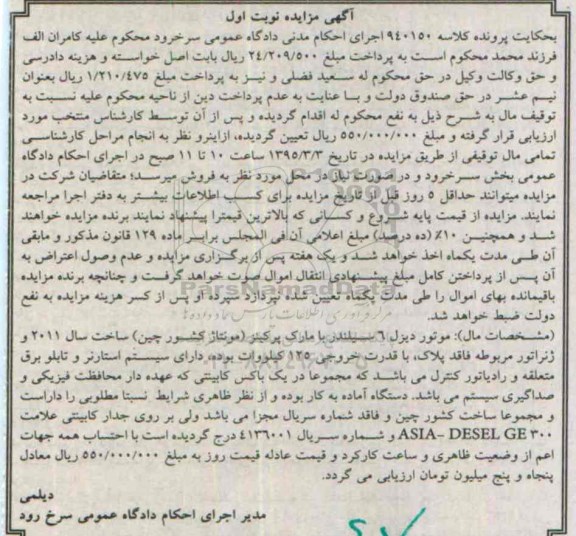 آگهی مزایده نوبت اول
بحکایت پرونده کلاسه ۹۴۰۱۵۰ اجرای احکام مدنی دادگاه عمومی سرخرود محکوم علیه کامران الف
فرزند محمد محکوم است به پرداخت مبلغ ۲۴/۲۰۹/۵۰۰ ریال بابت اصل خواسته و هزینه دادرسی
و حق وکالت وکیل در حق محکوم له سعید فضلی و نیز به پرداخت مبلغ ۱/۲۱۰/۴۷۵ ریال بعنوان
نیم عشر در حق صندوق دولت و با عنایت به عدم پرداخت دین از ناحیه محکوم علیه نسبت به
توقیف مال به شرح ذیل به نفع محکوم له اقدام گردیده و پس از آن توسط کارشناس منتخب مورد
ارزیابی قرار گرفته و مبلغ ۵۵۰/۰۰۰/۰۰۰ ریال تعیین گردیده، ازاینرو نظر به انجام مراحل کارشناسی
تمامی مال توقیفی از طریق مزایده در تاریخ ۱۳۹۵/۳/۳ ساعت ۱۰ تا ۱۱ صبح در اجرای احکام دادگاه
عمومی بخش سرخرود و در صورت نیاز در محل مورد نظر به فروش میرسد؛ متقاضیان شرکت در
مزایده میتوانند حداقل ۵ روز قبل از تاریخ مزایده برای کسب اطلاعات بیشتر به دفتر اجرا مراجعه
نمایند. مزایده از قیمت پایه شروع و کسانی که بالاترین قیمترا پیشنهاد نمایند برنده مزایده خواهند
شد و همچنین ۱۰٪ (ده درصد) مبلغ اعلامی آن فی المجلس برابر ماده ۱۲۹ قانون مذکور و مابقی
آن طی مدت یکماه اخذ خواهد شد و یک هفته پس از برگزاری مزایده و عدم وصول اعتراض به
آن پس از پرداختن کامل مبلغ پیشنهادی انتقال اموال صورت خواهد گرفت و چنانچه برنده مزایده
باقیمانده بهای اموال را طی مدت یکماه تعیین شده نپردازد سپرده او پس از کسر هزینه مزایده به نفع
دولت ضبط خواهد شد.
(مشخصات مال): موتور دیزل ۶ سیلندر با مارک پرکینز (مونتاژ کشور چین) ساخت سال ۲۰۱۱ و
ژنراتور مربوطه فاقد پلاک، با قدرت خروجی ۱۲۵ کیلووات بوده، دارای سیستم استارتر و تابلو برق
متعلقه و رادیاتور کنترل می باشد که مجموعا در یک باکس کابینتی که عهده دار محافظت فیزیکی و
صداگیری سیستم می باشد. دستگاه آماده به کار بوده و از نظر ظاهری شرایط نسبتا مطلوبی را داراست
و مجموعا ساخت کشور چین و فاقد شماره سریال مجزا می باشد ولی بر روی جدار کابینتی علامت
ASIA- DESEL GE ۳۰۰ و شماره سریال ۴۱۳۶۰۰۱ درج گردیده است با احتساب همه جهات
اعم از وضعیت ظاهری و ساعت کارکرد و قیمت عادله قیمت روز به مبلغ ۵۵۰/۰۰۰/۰۰۰ ریال معادل
پنجاه و پنج میلیون تومان ارزیابی می گردد.
دیلمی
مدیر اجرای احکام دادگاه عمومی سرخ رود
ParsNamadData